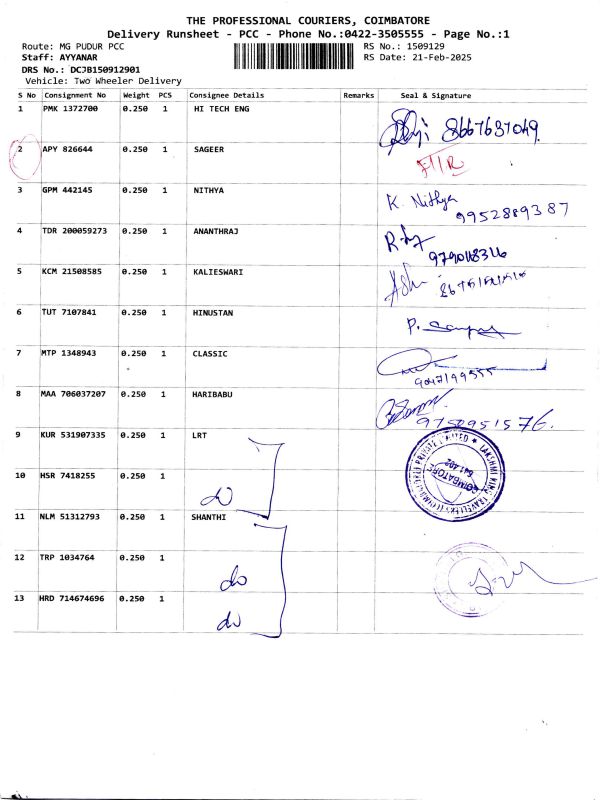 THE PROFESSIONAL COURIERS, COIMBATORE
Delivery Runsheet - PCC - Phone No.:0422-3505555 - Page No.:1
Route: MG PUDUR PCC RS No.: 1509129
Staff: AYYANAR RS Date: 21-Feb-2025
DRS No.: DCJB150912901
Vehicle: Two Wheeler Delivery
S No Consignment No Weight PCS Consignee Details Remarks Seal & Signature
1 PMK 1372700 0.250 1 HI TECH ENG
8667637049
2 APY 826644 0.250 1 SAGEER
3 GPM 442145 0.250 1 NITHYA K. Nithya
9952889387
4 TDR 200059273 0.250 1 ANANTHRAJ
5 KCM 21508585 0.250 1 KALIESWARI
6 TUT 7107841 0.250 1 HINUSTAN
7 MTP 1348943 0.250 1 CLASSIC
9047199555
8 MAA 706037207 0.250 1 HARIBABU
9752951576
9 KUR 531907335 0.250 1 LRT
10 HSR 7418255 0.250 1
do
11 NLM 51312793 0.250 1 SHANTHI
12 TRP 1034764 0.250 1
do
13 HRD 714674696 0.250 1
do
COIMBATORE
641 402